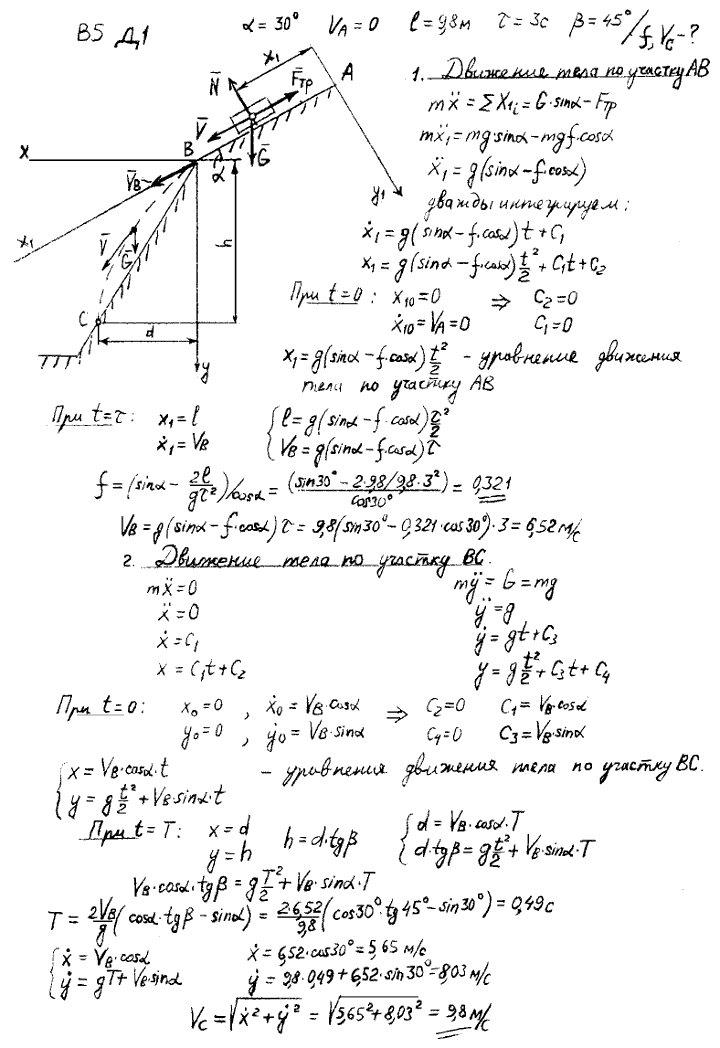 B5 Д1 α = 30° V_A = 0 l = 9,8м τ = 3c β = 45° / f, V_C - ?
x₁
N̄ F̄тр A
1. Движение тела по участку AB
V̄ B Ḡ
X
V̄_B α
y₁
x₁
V̄ Ḡ h
C
d
y
mẍ = ΣX₁ᵢ = G·sinα − Fтр
mẍ₁ = mg·sinα − mgf·cosα
ẍ₁ = g(sinα − f·cosα)
дважды интегрируем:
ẋ₁ = g(sinα − f·cosα)t + C₁
x₁ = g(sinα − f·cosα)t²/2 + C₁t + C₂
При t=0: x₁₀ = 0 ⇒ C₂ = 0
ẋ₁₀ = V_A = 0 C₁ = 0
x₁ = g(sinα − f·cosα)t²/2 - уравнение движения
тела по участку AB
При t=τ: x₁ = l { l = g(sinα − f·cosα)τ²/2
ẋ₁ = V_B V_B = g(sinα − f·cosα)τ
f = (sinα − 2l/gτ²)/cosα = (sin30° − 2·9,8/9,8·3²)/cos30° = 0,321
V_B = g(sinα − f·cosα)τ = 9,8(sin30° − 0,321·cos30°)·3 = 6,52 м/с
2. Движение тела по участку BC.
mẍ = 0 mÿ = G = mg
ẍ = 0 ÿ = g
ẋ = C₁ ẏ = gt + C₃
x = C₁t + C₂ y = g t²/2 + C₃t + C₄
При t=0: x₀ = 0 , ẋ₀ = V_B·cosα ⇒ C₂ = 0 C₁ = V_B·cosα
y₀ = 0 , ẏ₀ = V_B·sinα C₄ = 0 C₃ = V_B·sinα
{ x = V_B·cosα·t - уравнения движения тела по участку BC.
y = g t²/2 + V_B·sinα·t
При t = T: x = d h = d·tgβ { d = V_B·cosα·T
y = h d·tgβ = g t²/2 + V_B·sinα·T
V_B·cosα·tgβ = g T²/2 + V_B·sinα·T
T = 2V_B/g (cosα·tgβ − sinα) = 2·6,52/9,8 (cos30°·tg45° − sin30°) = 0,49c
{ ẋ = V_B·cosα ẋ = 6,52·cos30° = 5,65 м/с
ẏ = gT + V_B·sinα ẏ = 9,8·0,49 + 6,52·sin30° = 8,03 м/с
V_C = √(ẋ² + ẏ²) = √(5,65² + 8,03²) = 9,8 м/с